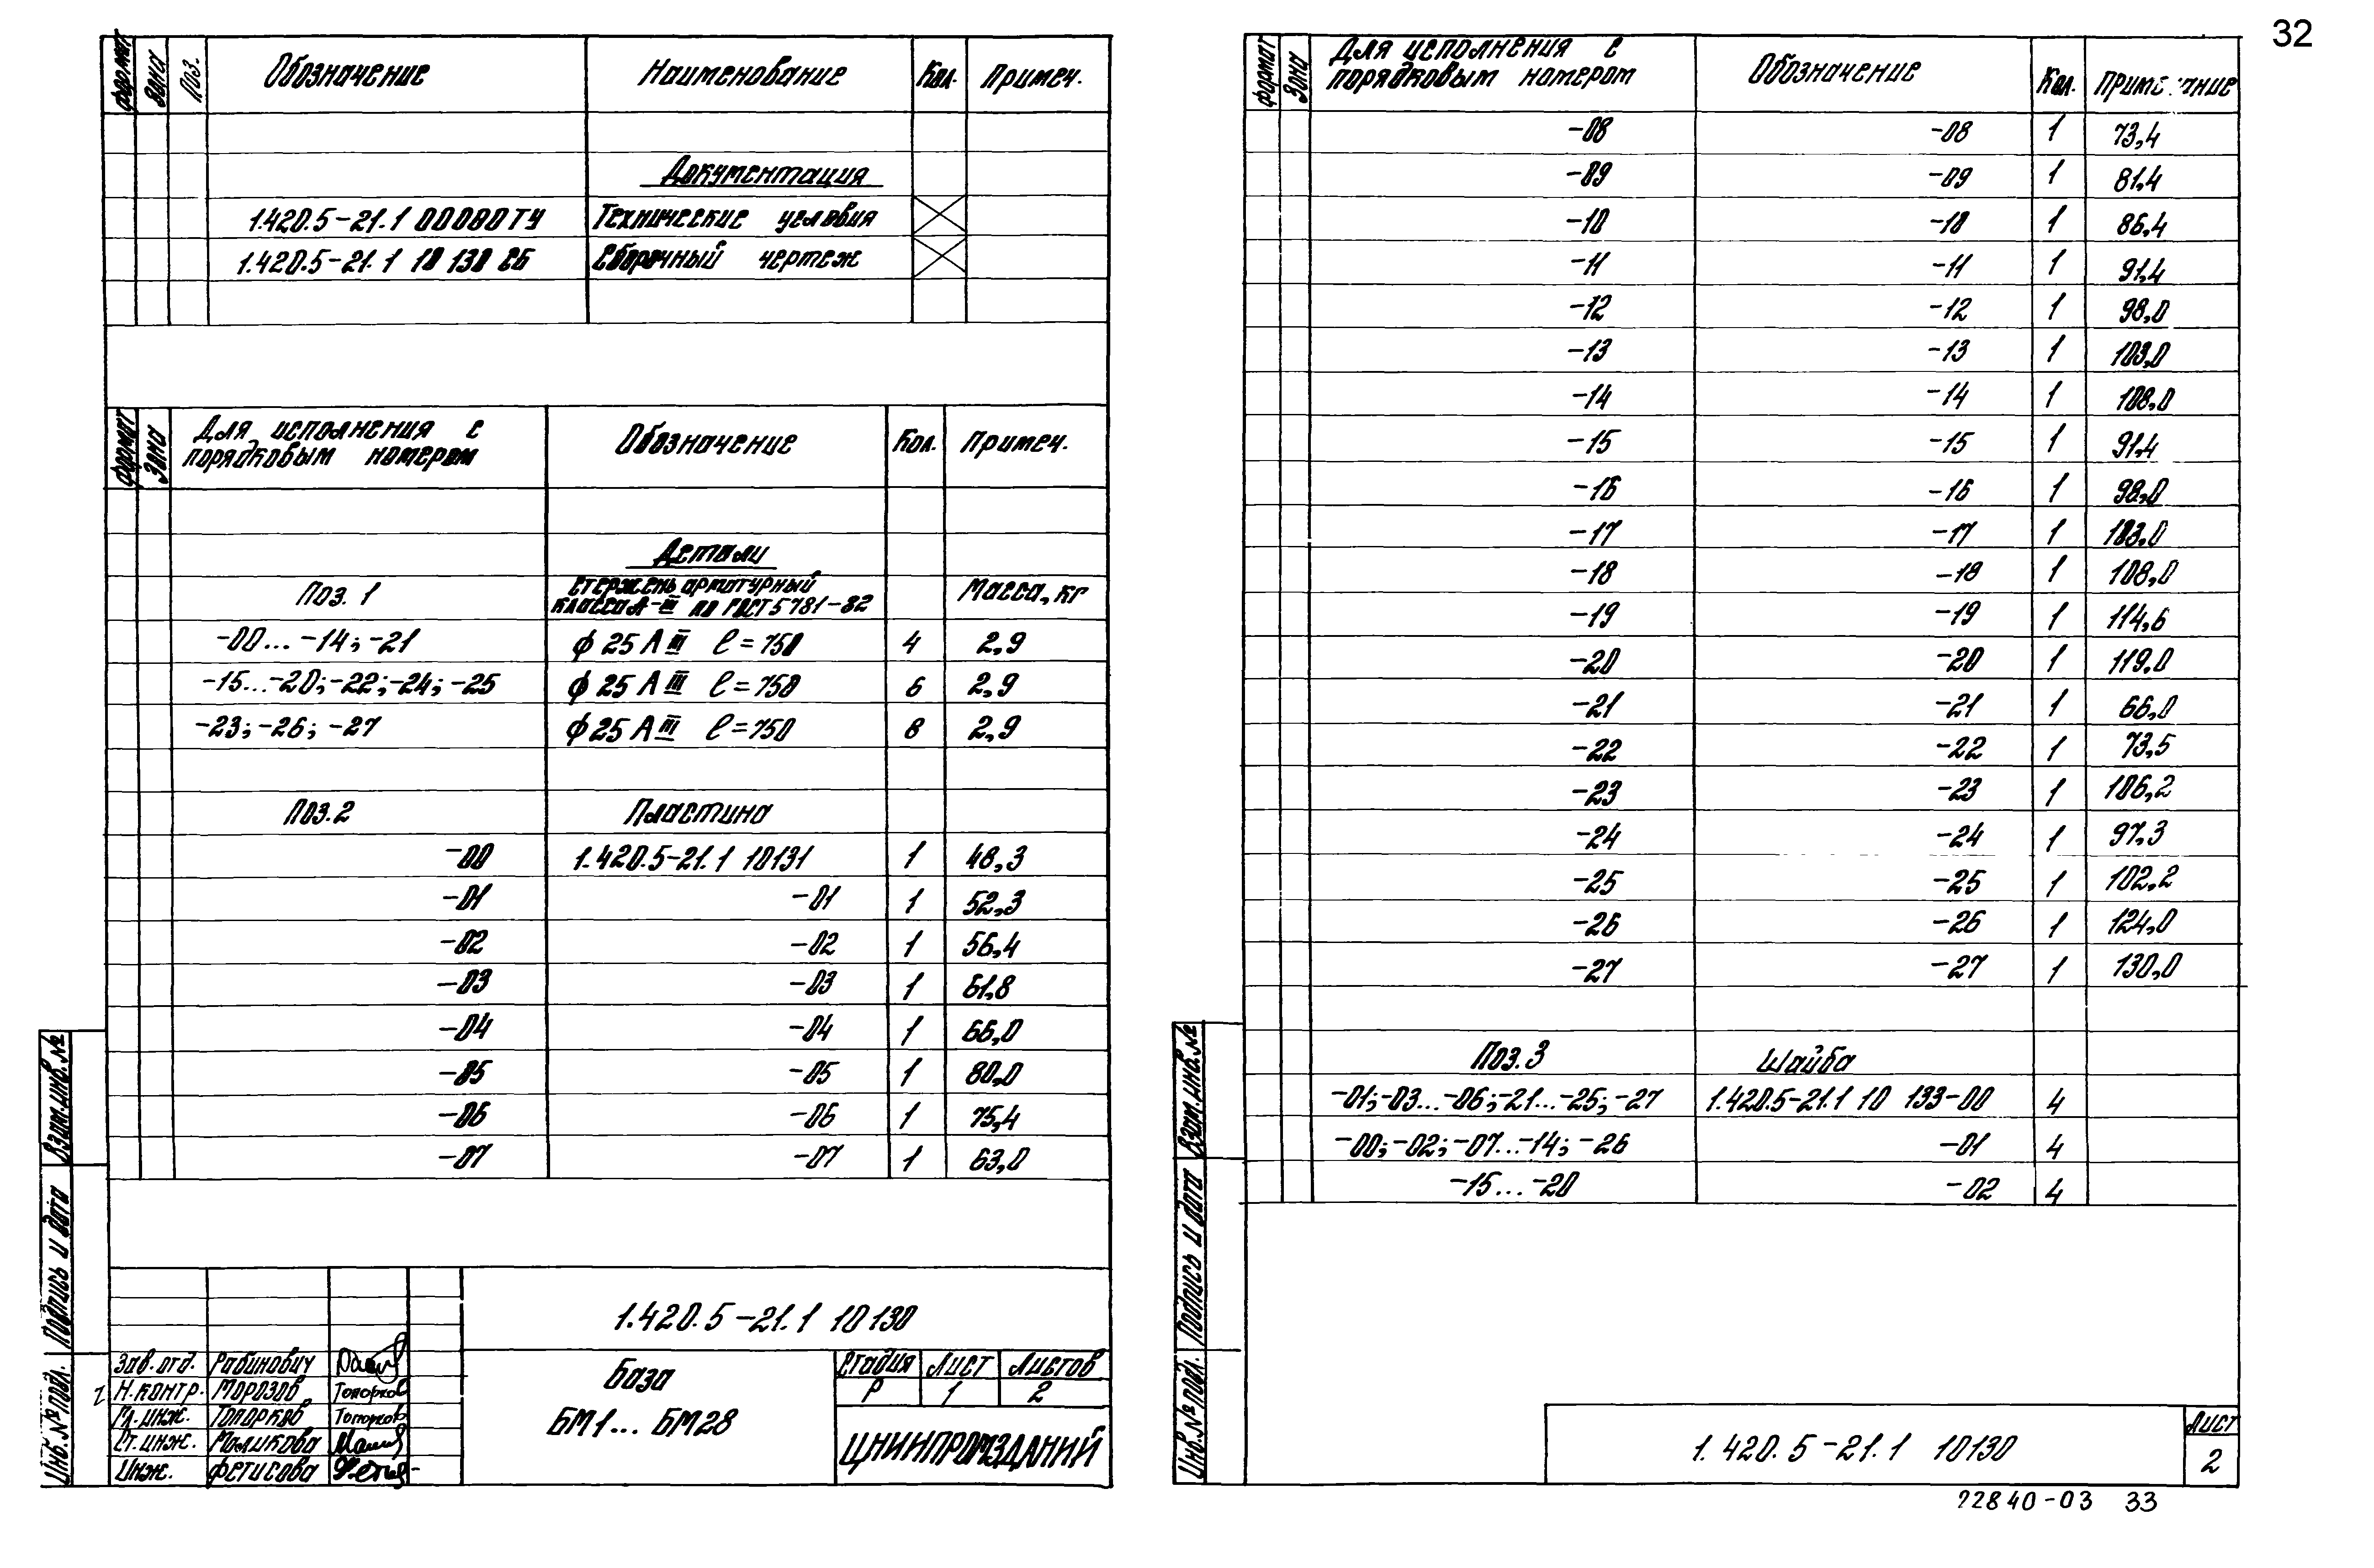 32
формат Зона Поз. Обозначение Наименование Кол. Примеч.
Документация
1.420.5-21.1 00000ТУ Технические условия
1.420.5-21.1 10 130 СБ Сборочный чертеж
формат Зона Для исполнения с порядковым номером Обозначение Кол. Примеч.
Детали
Поз. 1 Стержень арматурный класса А-III по ГОСТ 5781-82 Масса, кг
-00... -14; -21 ϕ 25 А III ℓ = 750 4 2,9
-15...-20; -22; -24; -25 ϕ 25 А III ℓ = 750 6 2,9
-23; -26; -27 ϕ 25 А III ℓ = 750 8 2,9
Поз. 2 Пластина
-00 1.420.5-21.1 10131 1 48,3
-01 -01 1 52,3
-02 -02 1 56,4
-03 -03 1 61,8
-04 -04 1 66,0
-05 -05 1 80,0
-06 -06 1 75,4
-07 -07 1 63,0
Взам.инв.№
Подпись и дата
Инв.№подл.
1.420.5-21.1 10130
Зав.отд. Рабинович
Н.контр. Морозов Топорков
Гл.инж. Топорков Топорков
Ст.инж. Маликова
Инж. Фетисова
База
БМ1... БМ28
Стадия Лист Листов
Р 1 2
ЦНИИПРОМЗДАНИЙ
формат Зона Для исполнения с порядковым номером Обозначение Кол. Примечание
-08 -08 1 73,4
-09 -09 1 81,4
-10 -10 1 86,4
-11 -11 1 91,4
-12 -12 1 98,0
-13 -13 1 103,0
-14 -14 1 108,0
-15 -15 1 91,4
-16 -16 1 98,0
-17 -17 1 103,0
-18 -18 1 108,0
-19 -19 1 114,6
-20 -20 1 119,0
-21 -21 1 66,0
-22 -22 1 73,5
-23 -23 1 106,2
-24 -24 1 97,3
-25 -25 1 102,2
-26 -26 1 124,0
-27 -27 1 130,0
Поз. 3 Шайба
-01;-03...-06;-21...-25;-27 1.420.5-21.1 10 133-00 4
-00;-02;-07...-14; -26 -01 4
-15...-20 -02 4
Взам.инв.№
Подпись и дата
Инв.№подл.
1.420.5-21.1 10130
Лист
2
22840-03 33